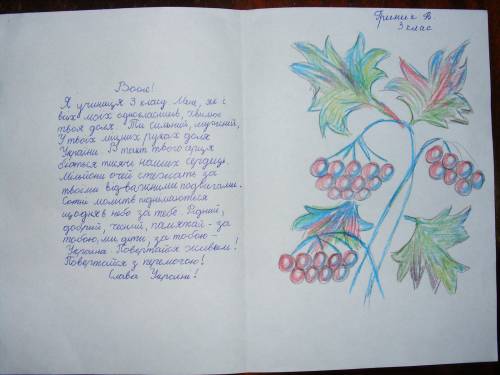 Воїне!
Я учениця 3 класу. Мене, як і
всіх моїх однокласників, хвилює
твоя доля. Ти сильний, мужній.
У твоїх міцних руках доля
України. В такт твого серця
б'ються тисячі наших сердець.
Мільйони очей стежать за
твоїми відважними подвигами.
Сотні молитв піднімаються
щодня в небо за тебе. Рідний,
добрий, чесний, пам'ятай - за
тобою, ми, діти, за тобою -
Україна. Повертайся живим!
Повертайся з перемогою!
Слава Україні!
В.
3 клас